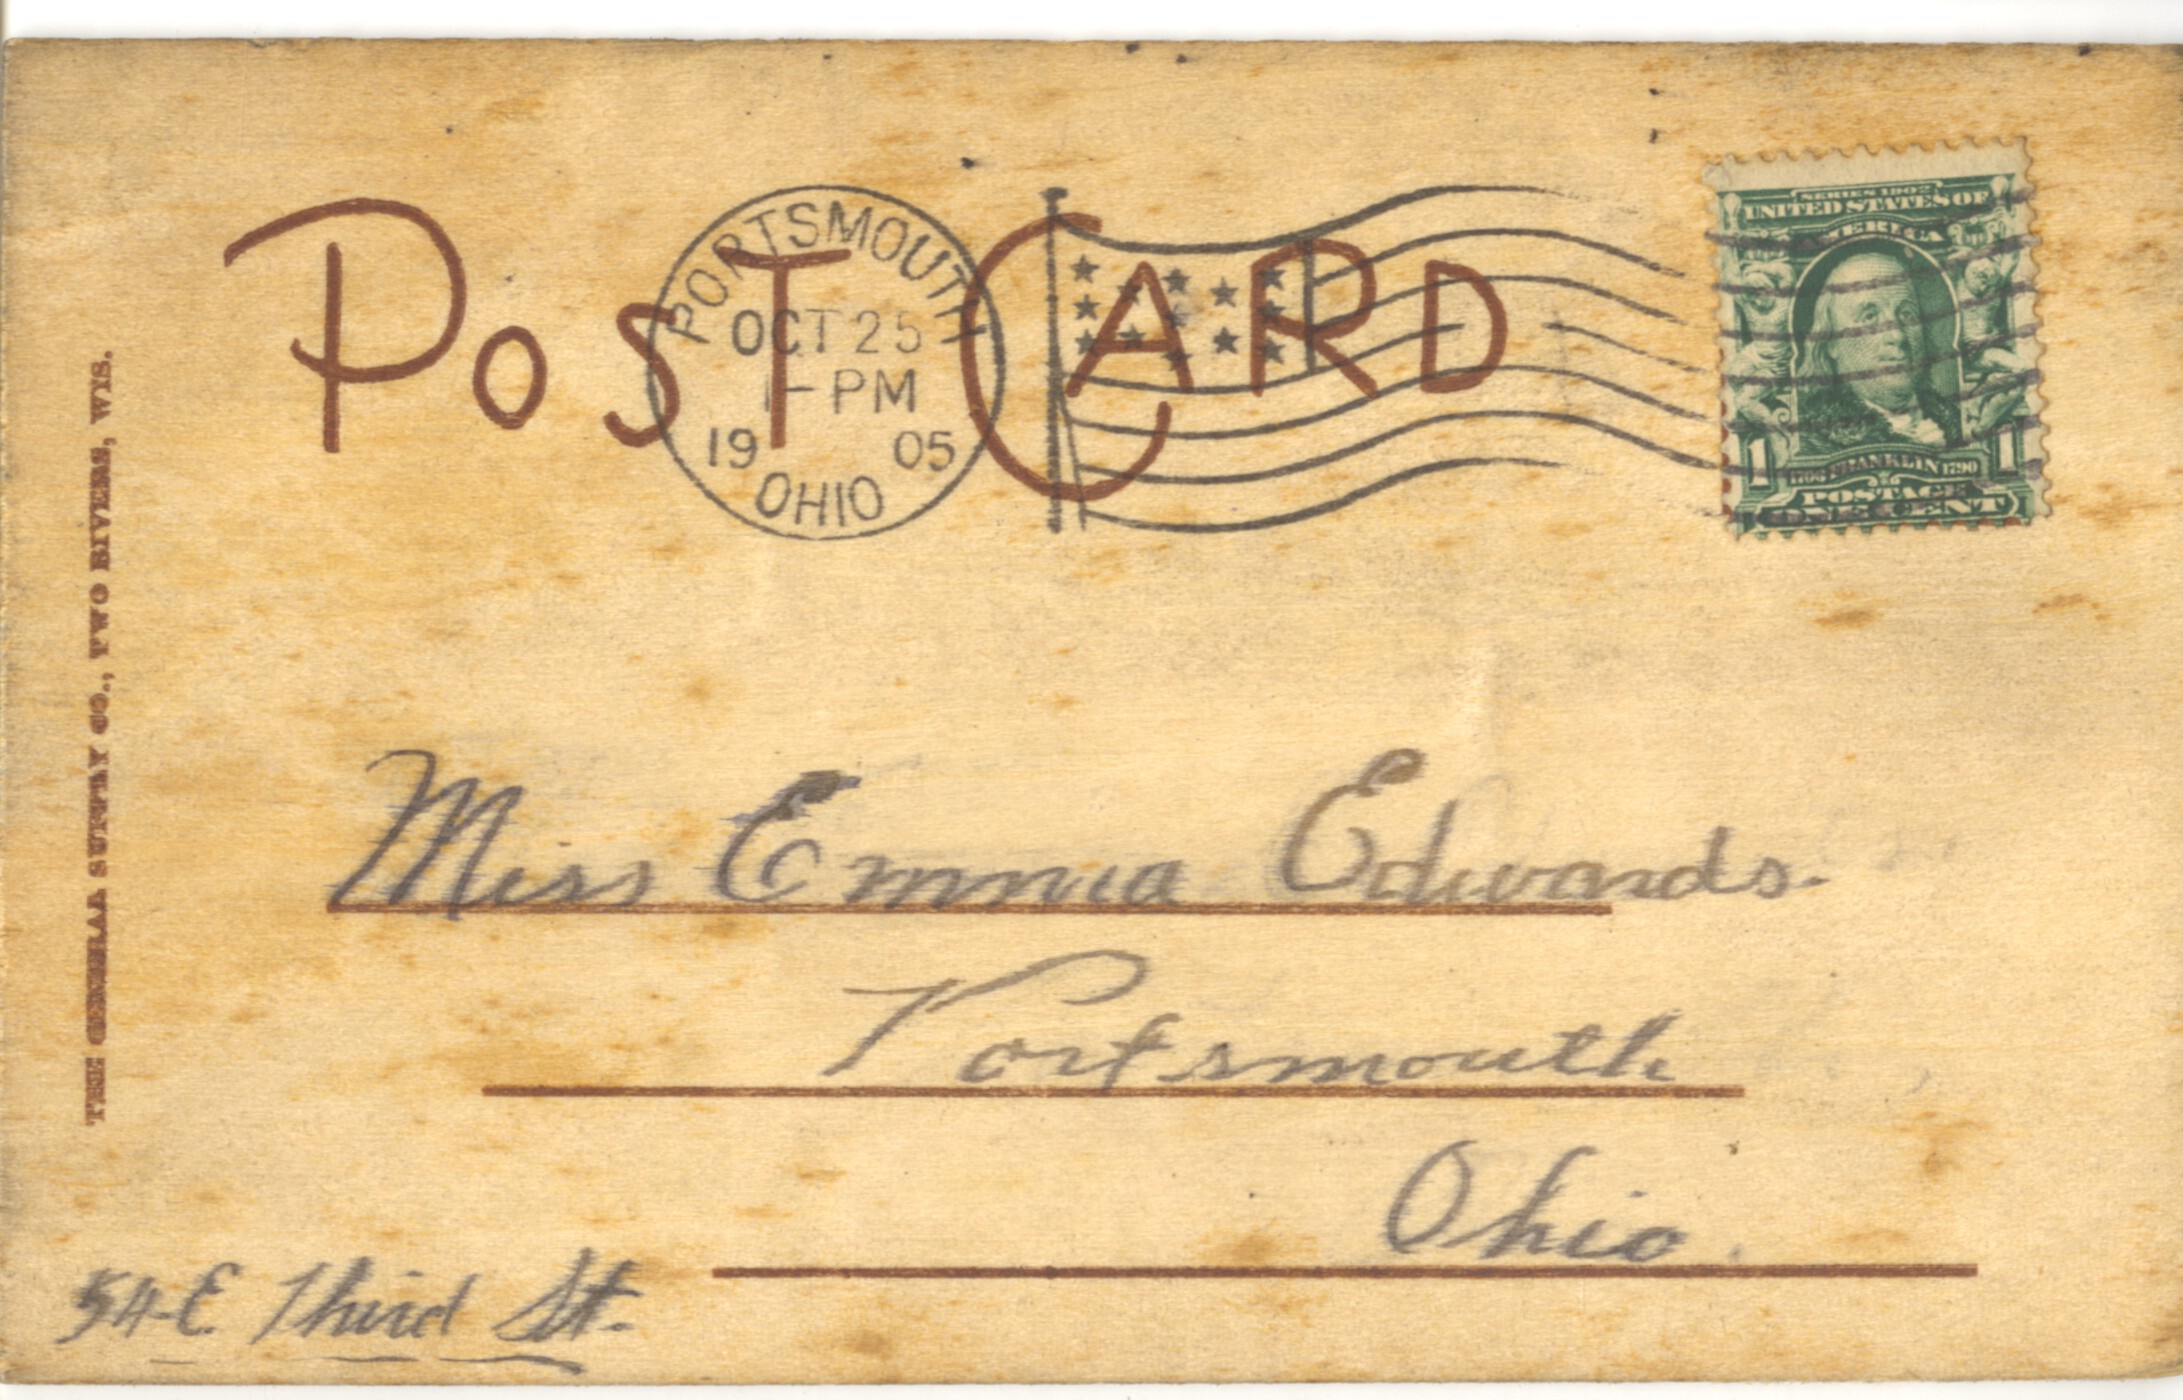 POST CARD
PORTSMOUTH
OCT 25
1-PM
19 05
OHIO
SERIES 1902
UNITED STATES OF
AMERICA
1 1706 FRANKLIN 1790 1
POSTAGE
ONE CENT
THE GENERAL SUPPLY CO., TWO RIVERS, WIS.
Miss Emma Edwards.
Portsmouth
Ohio.
54-E. Third St.